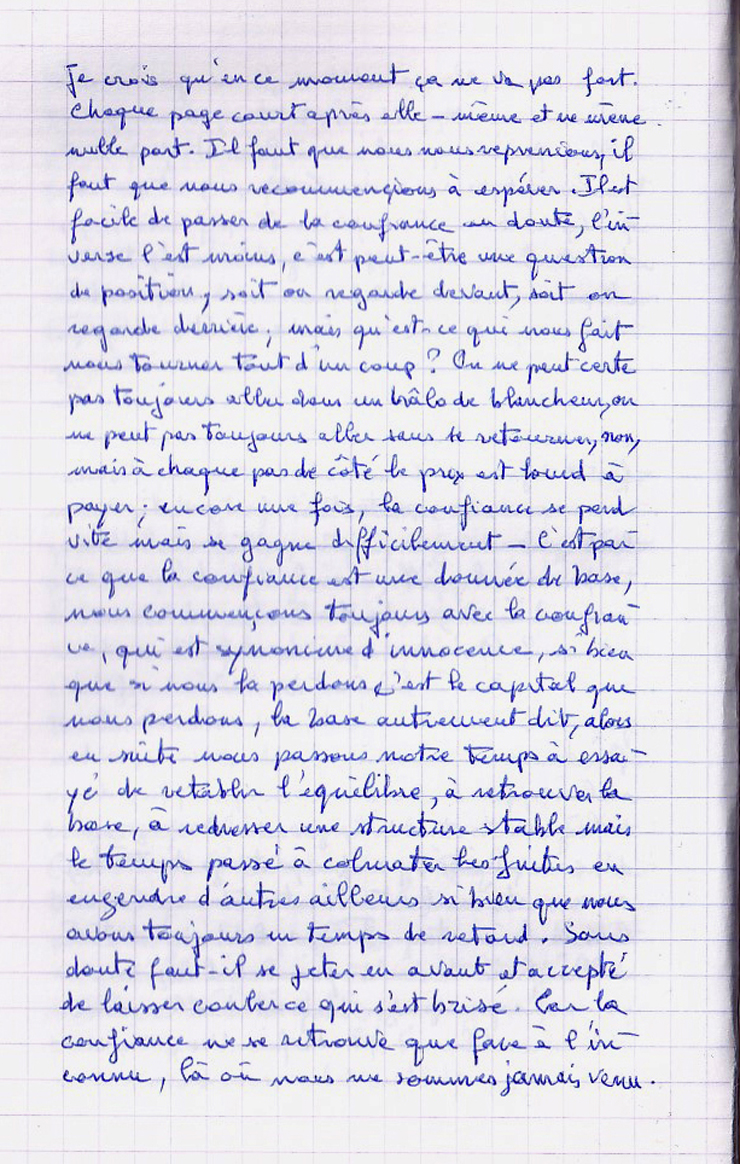 Je crois qu'en ce moment ça ne va pas fort.
Chaque page court après elle-même et ne mène
nulle part. Il faut que nous nous reprenions, il
faut que nous recommencions à espérer. Il est
facile de passer de la confiance au doute, l'in-
verse l'est moins, c'est peut-être une question
de position, soit on regarde devant, soit on
regarde derrière, mais qu'est-ce qui nous fait
nous tourner tout d'un coup ? On ne peut certe
pas toujours aller dans un halo de blancheur, on
ne peut pas toujours aller sans se retourner, non,
mais à chaque pas de côté le prix est lourd à
payer ; encore une fois, la confiance se perd
vite mais se gagne difficilement - C'est par
ce que la confiance est une donnée de base,
nous commençons toujours avec la confian-
ce, qui est synonime d'innocence, si bien
que si nous la perdons c'est le capital que
nous perdons, la base autrement dit, alors
en suite nous passons notre temps à essa-
yé de rétablir l'équilibre, à retrouver la
base, à redresser une structure stable mais
le temps passé à colmater les fuites en
engendre d'autres ailleurs si bien que nous
avons toujours un temps de retard. Sans
doute faut-il se jeter en avant et accepté
de laisser couler ce qui s'est brisé. Car la
confiance ne se retrouve que face à l'in-
connu, là où nous ne sommes jamais venu.